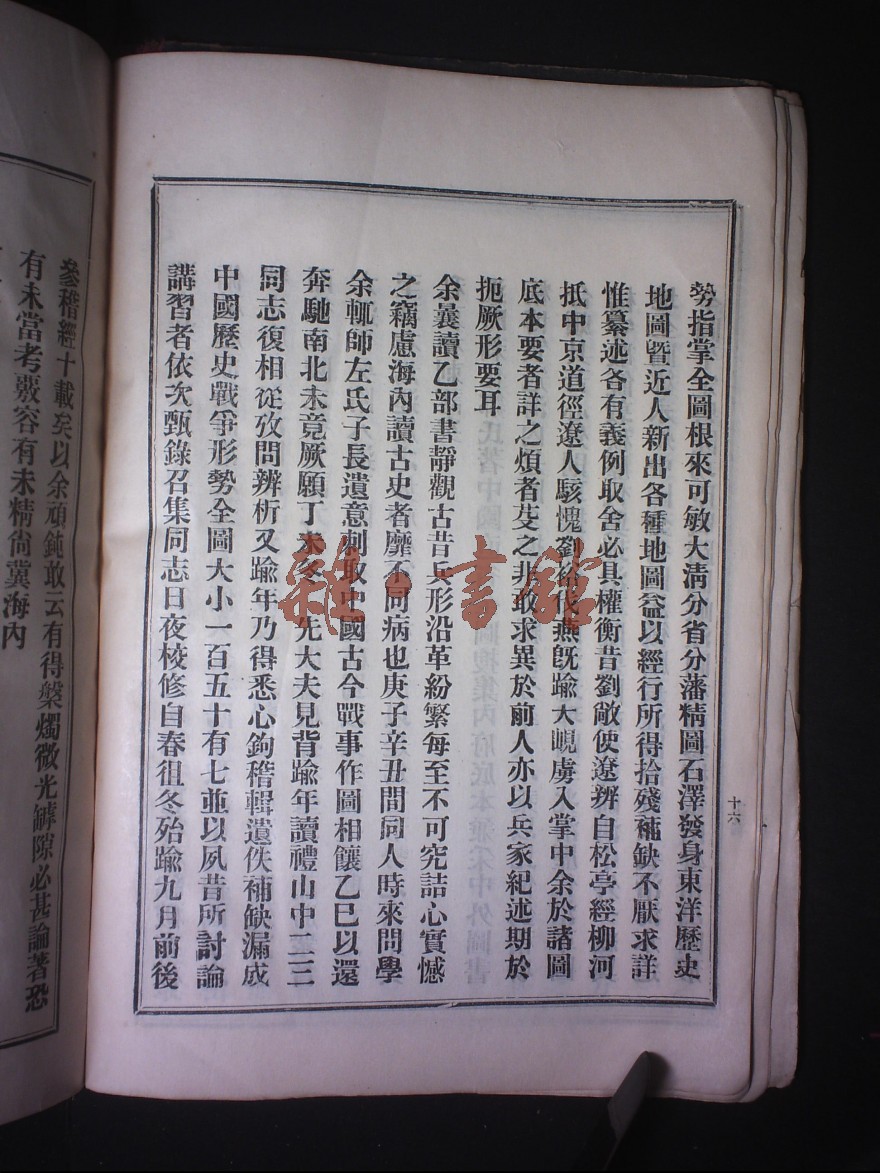 勞指掌全圖根來可敏大淸分省分藩精圖石澤發身東洋歷史
地圖曁近人新出各種地圖益以經行所得拾殘補缺不厭求詳
惟纂述各有義例取舍必具權衡昔劉敞使遼辨自松亭經柳河
抵中京道徑遼人駭愧劉裕伐燕旣踰大峴虜入掌中余於諸圖
底本要者詳之煩者芟之非敢求異於前人亦以兵家紀述期於
扼厥形要耳
余曩讀乙部書靜觀古昔兵形沿革紛繁每至不可究詰心實憾
之竊慮海內讀古史者靡不同病也庚子辛丑間同人時來問學
余輒師左氏子長遺意刺取中國古今戰事作圖相饟乙巳以還
奔馳南北未竟厥願丁未冬先大夫見背踰年讀禮山中二三
同志復相從攷問辨析又踰年乃得悉心鉤稽輯遺佚補缺漏成
中國歷史戰爭形勢全圖大小一百五十有七並以夙昔所討論
講習者依次甄錄召集同志日夜校修自春徂冬殆踰九月前後
十六
參稽經十載矣以余頑鈍敢云有得槃燭微光罅隙必甚論著恐
有未當考覈容有未精尙冀海內
雜·書館